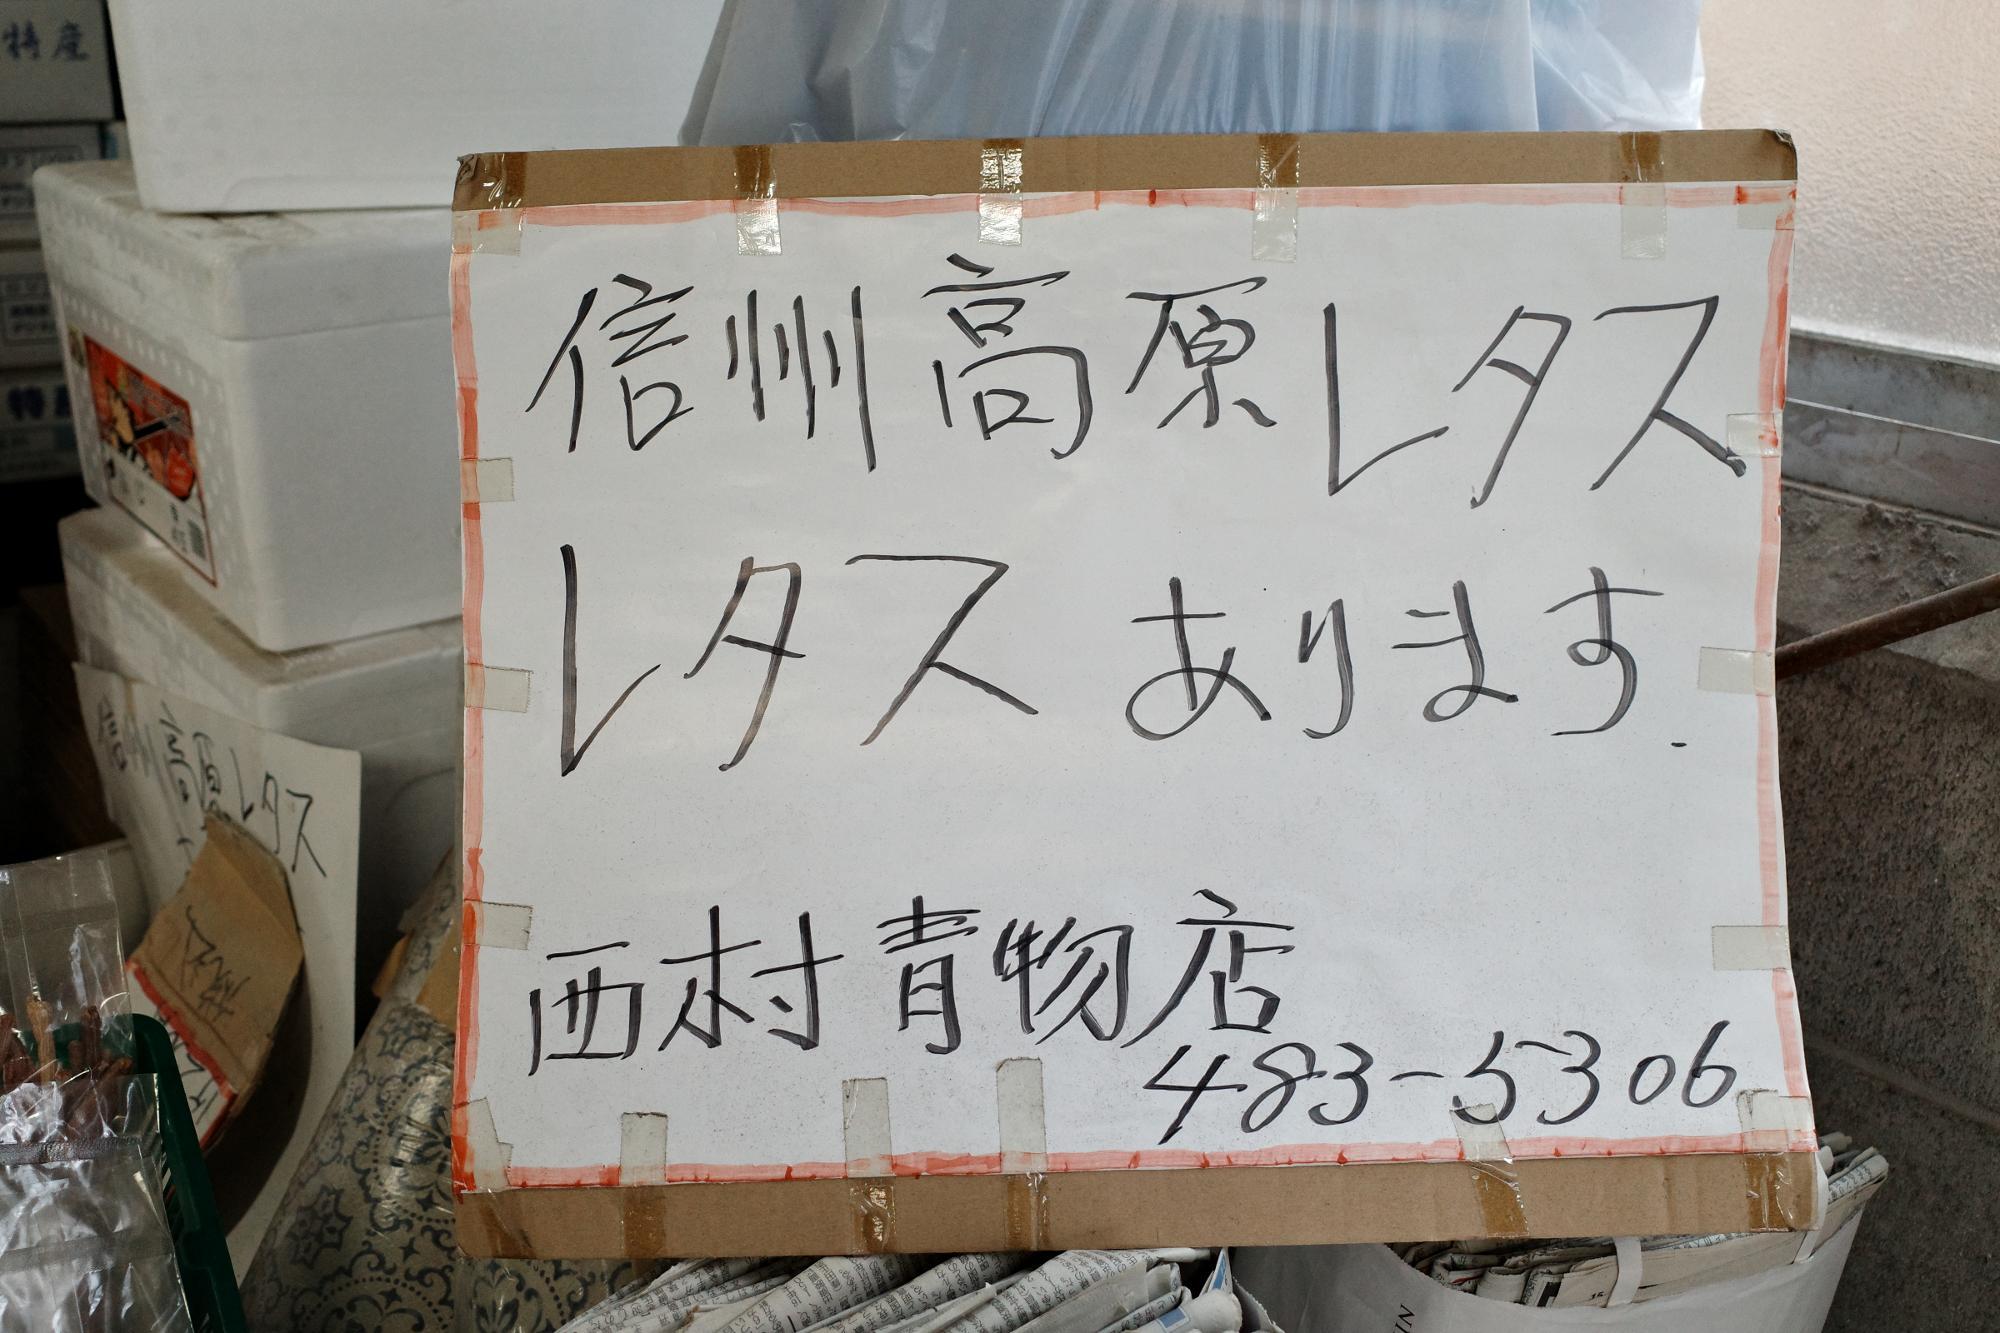 信州高原レタス
レタス あります.
西村青物店
483-5306
特産
高原レタス